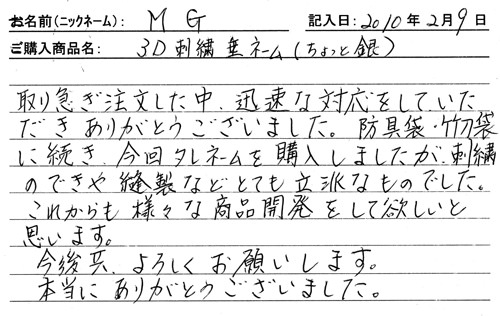 お名前(ニックネーム): MG 記入日:2010年2月9日
ご購入商品名: 3D刺繍垂ネーム(ちょっと銀)
取り急ぎ注文した中、迅速な対応をしていた
だきありがとうございました。防具袋・竹刀袋
に続き、今回タレネームを購入しましたが、刺繍
のできや縫製などとても立派なものでした。
これからも様々な商品開発をして欲しいと
思います。
今後共、よろしくお願いします。
本当にありがとうございました。